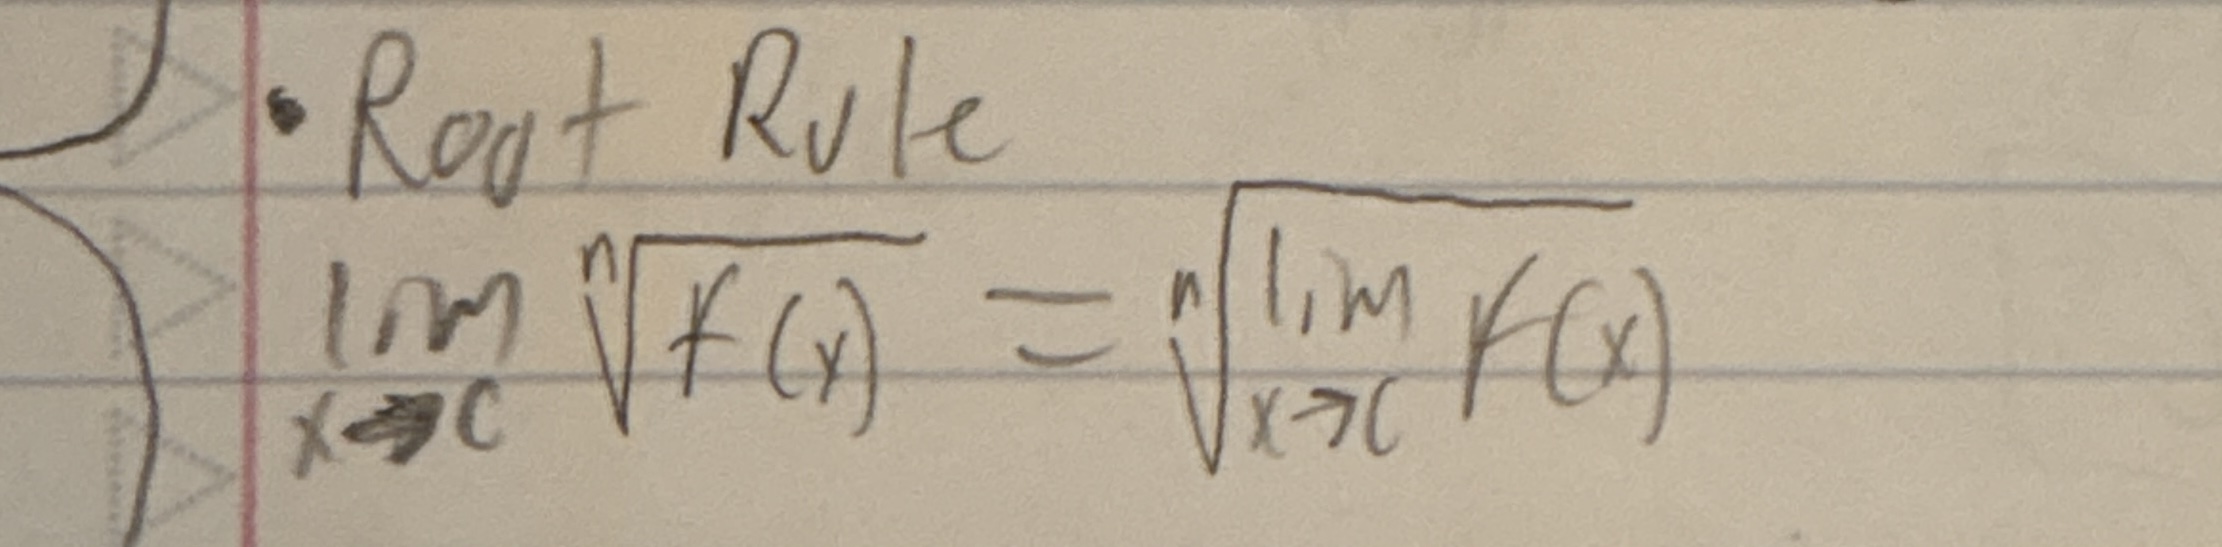 • Root Rule
lim x→c ⁿ√f(x) = ⁿ√lim x→c f(x)